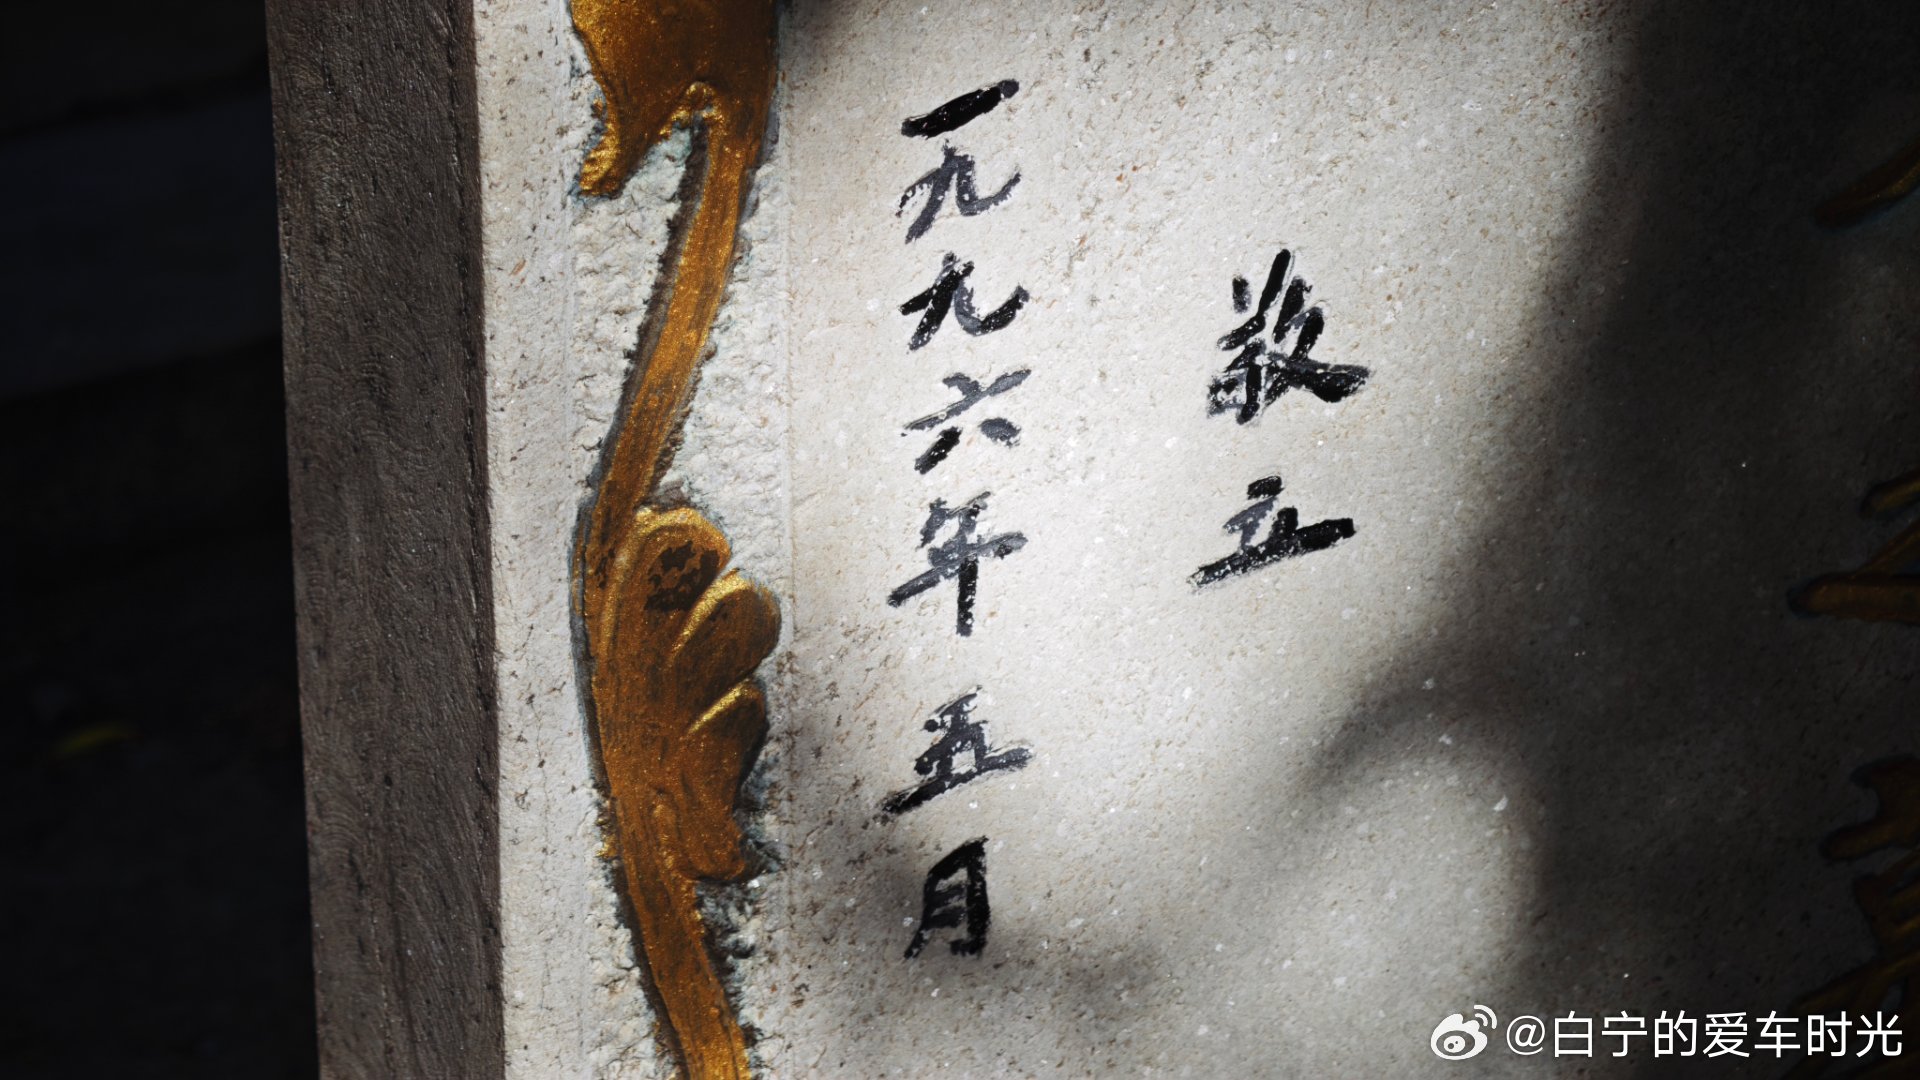 敬立
一九九六年五月
@白宁的爱车时光